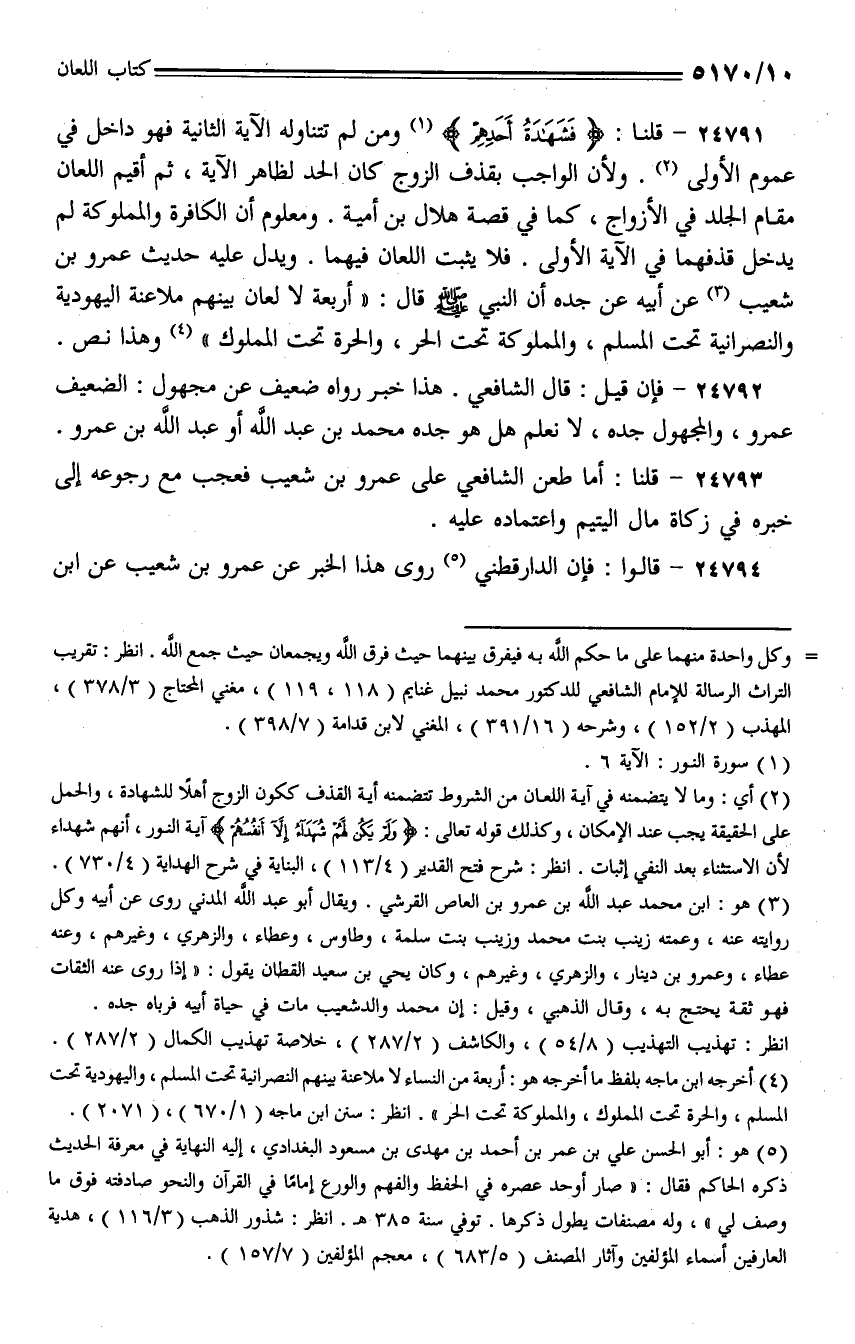 ٥١٧٠/١٠ كتاب اللعان
٢٤٧٩١ - قلنا : ﴿ فَشَهَٰدَةُ أَحَدِهِمۡ ﴾ (١) ومن لم تتناوله الآية الثانية فهو داخل في
عموم الأولى (٢) . ولأن الواجب بقذف الزوج كان الحد لظاهر الآية ، ثم أقيم اللعان
مقام الجلد في الأزواج ، كما في قصة هلال بن أمية . ومعلوم أن الكافرة والمملوكة لم
يدخل قذفهما في الآية الأولى . فلا يثبت اللعان فيهما . ويدل عليه حديث عمرو بن
شعيب (٣) عن أبيه عن جده أن النبي ﷺ قال : « أربعة لا لعان بينهم ملاعنة اليهودية
والنصرانية تحت المسلم ، والمملوكة تحت الحر ، والحرة تحت المملوك » (٤) وهذا نـص .
٢٤٧٩٢ - فإن قيـل : قال الشافعي . هذا خبـر رواه ضعيف عن مجهول : الضعيف
عمرو ، والمجهول جده ، لا نعلم هل هو جده محمد بن عبد اللَّه أو عبد اللَّه بن عمرو .
٢٤٧٩٣ - قلنا : أما طعن الشافعي على عمرو بن شعيب فعجب مع رجوعه إلى
خبره في زكاة مال اليتيم واعتماده عليه .
٢٤٧٩٤ - قالـوا : فإن الدارقطني (٥) روى هذا الخبر عن عمرو بن شعيب عن ابن
= وكل واحدة منهما على ما حكم اللَّه بـه فيفرق بينهما حيث فرق اللَّه ويجمعان حيث جمع اللَّه . انظر : تقريب
التراث الرسالة للإمام الشافعي للدكتور محمد نبيل غنايم ( ١١٨ ، ١١٩ ) ، مغني المحتاج ( ٣٧٨/٣ ) ،
المهذب ( ١٥٢/٢ ) ، وشرحه ( ٣٩١/١٦ ) ، المغني لابن قدامة ( ٣٩٨/٧ ) .
(١) سورة النـور : الآية ٦ .
(٢) أي : وما لا يتضمنه في آيـة اللعـان من الشروط تتضمنه أيـة القذف ككون الزوج أهلًا للشهادة ، والحمل
على الحقيقة يجب عند الإمكان ، وكذلك قوله تعالى : ﴿ وَلَمۡ يَكُن لَّهُمۡ شُهَدَآءُ إِلَّآ أَنفُسُهُمۡ ﴾ آيـة النـور ، أنهـم شهداء
لأن الاستثناء بعد النفي إثبات . انظر : شرح فتح القدير ( ١١٣/٤ ) ، البناية في شرح الهداية ( ٧٣٠/٤ ) .
(٣) هو : ابن محمد عبد اللَّه بن عمرو بن العاص القرشي . ويقال أبو عبد اللَّه المدني روى عن أبيه وكل
روايته عنه ، وعمته زينب بنت محمد وزينب بنت سلمة ، وطاوس ، وعطاء ، والزهري ، وغيرهم ، وعنه
عطاء ، وعمرو بن دينار ، والزهري ، وغيرهم ، وكان يحي بن سعيد القطان يقول : « إذا روى عنه الثقات
فهـو ثقـة يحتـج بـه ، وقال الذهبي ، وقيل : إن محمد والدشعيب مات في حياة أبيه فرباه جده .
انظر : تهذيب التهذيب ( ٥٤/٨ ) ، والكاشف ( ٢٨٧/٢ ) ، خلاصة تهذيب الكمال ( ٢٨٧/٢ ) .
(٤) أخرجه ابن ماجه بلفظ ما أخرجه هو : أربعة من النساء لا ملاعنة بينهم النصرانية تحت المسلم ، واليهودية تحت
المسلم ، والحرة تحت المملوك ، والمملوكة تحت الحر » . انظر : سنن ابن ماجه ( ٦٧٠/١ ) ، ( ٢٠٧١ ) .
(٥) هو : أبو الحسن علي بن عمر بن أحمد بن مهدى بن مسعود البغدادي ، إليه النهاية في معرفة الحديث
ذكره الحاكم فقال : « صار أوحد عصره في الحفظ والفهم والورع إمامًا في القرآن والنحو صادفته فوق ما
وصف لي » ، وله مصنفات يطول ذكرها . توفي سنة ٣٨٥ هـ . انظر : شذور الذهب (١١٦/٣ ) ، هدية
العارفين أسماء المؤلفين وآثار المصنف ( ٦٨٣/٥ ) ، معجم المؤلفين ( ١٥٧/٧ ) .